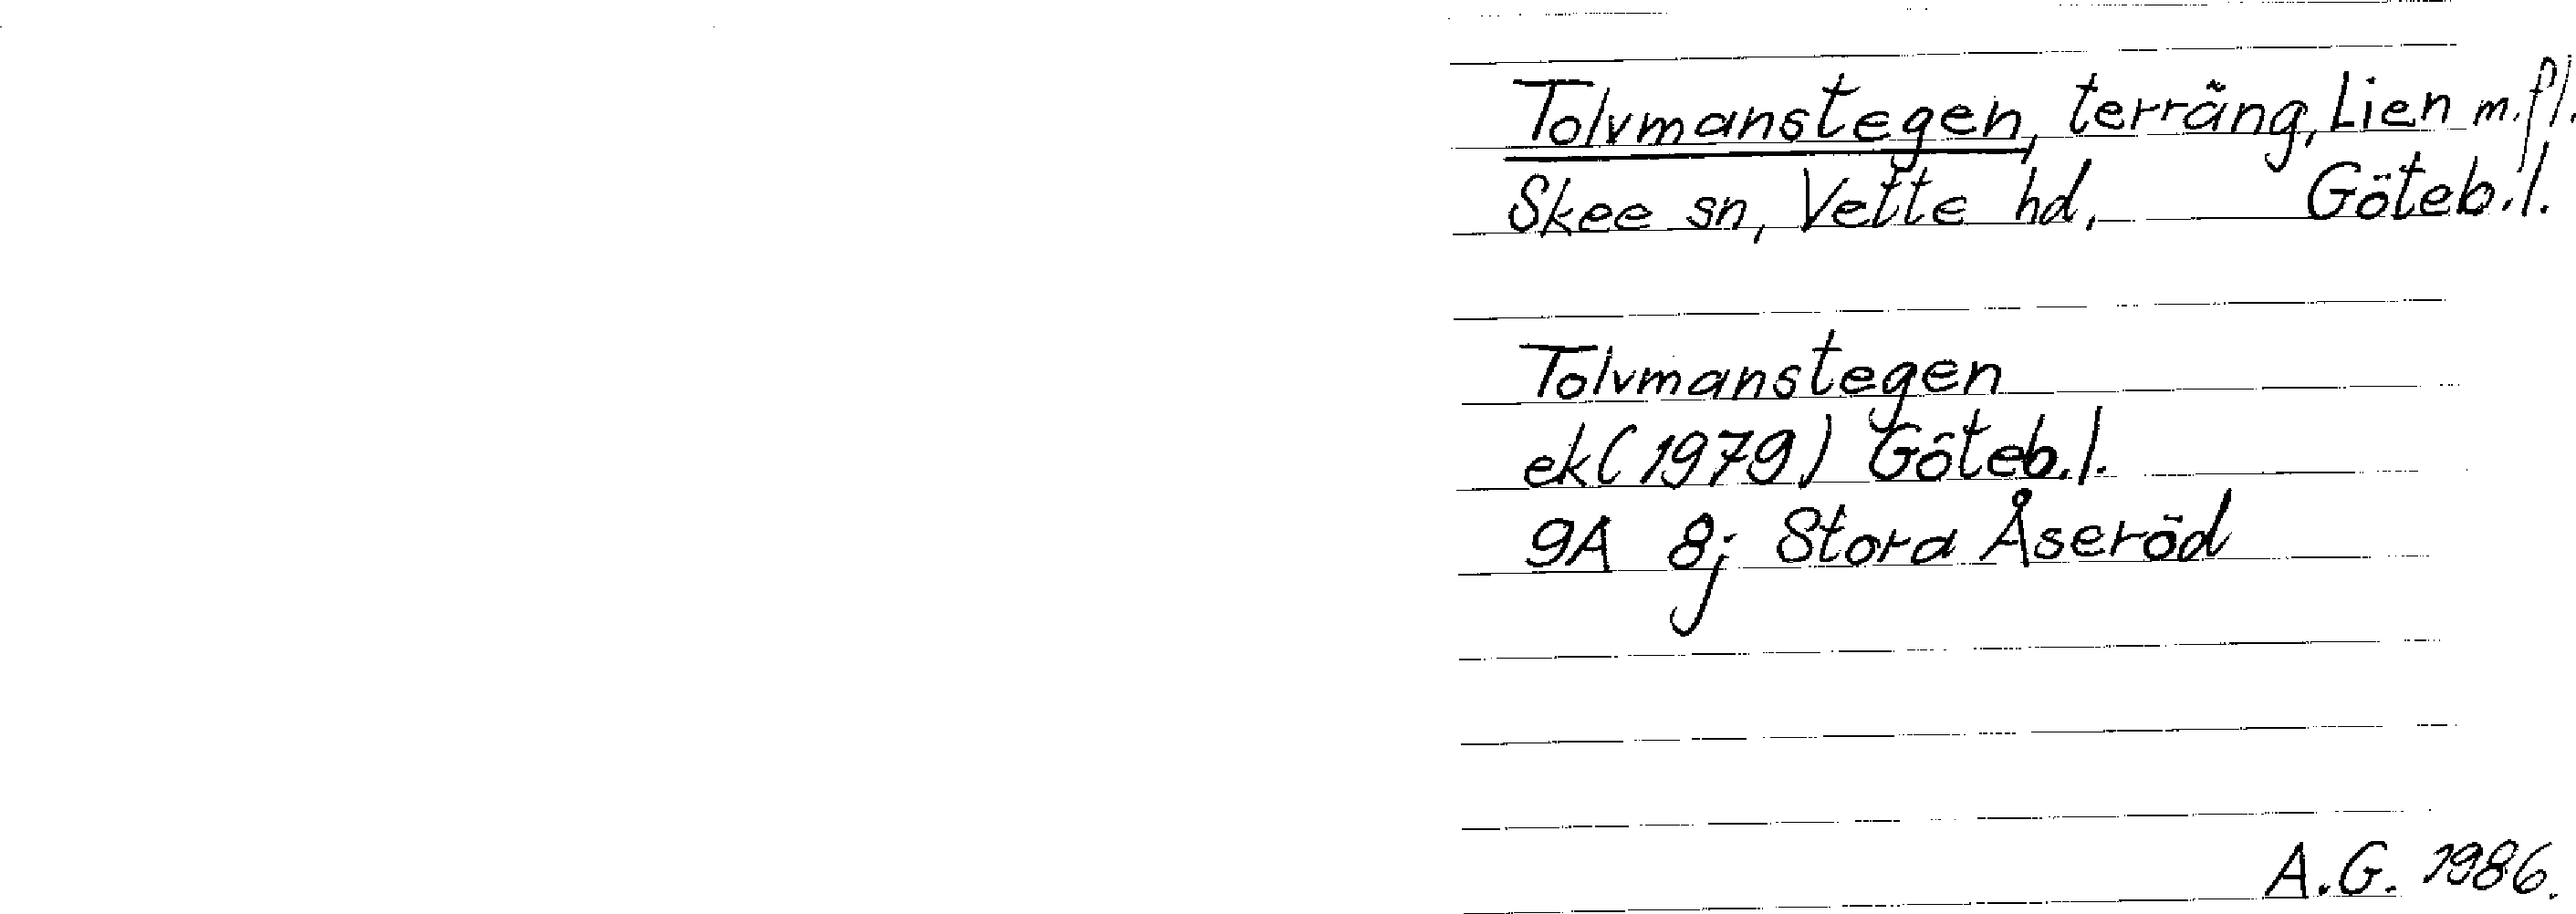 Tolvmanstegen, terräng, Lien m.fl.
Skee sn, Vette hd. Göteb.l.
Tolvmanstegen
ek (1979) Göteb.l.
9A 8j Stora Åseröd
A.G. 1986.